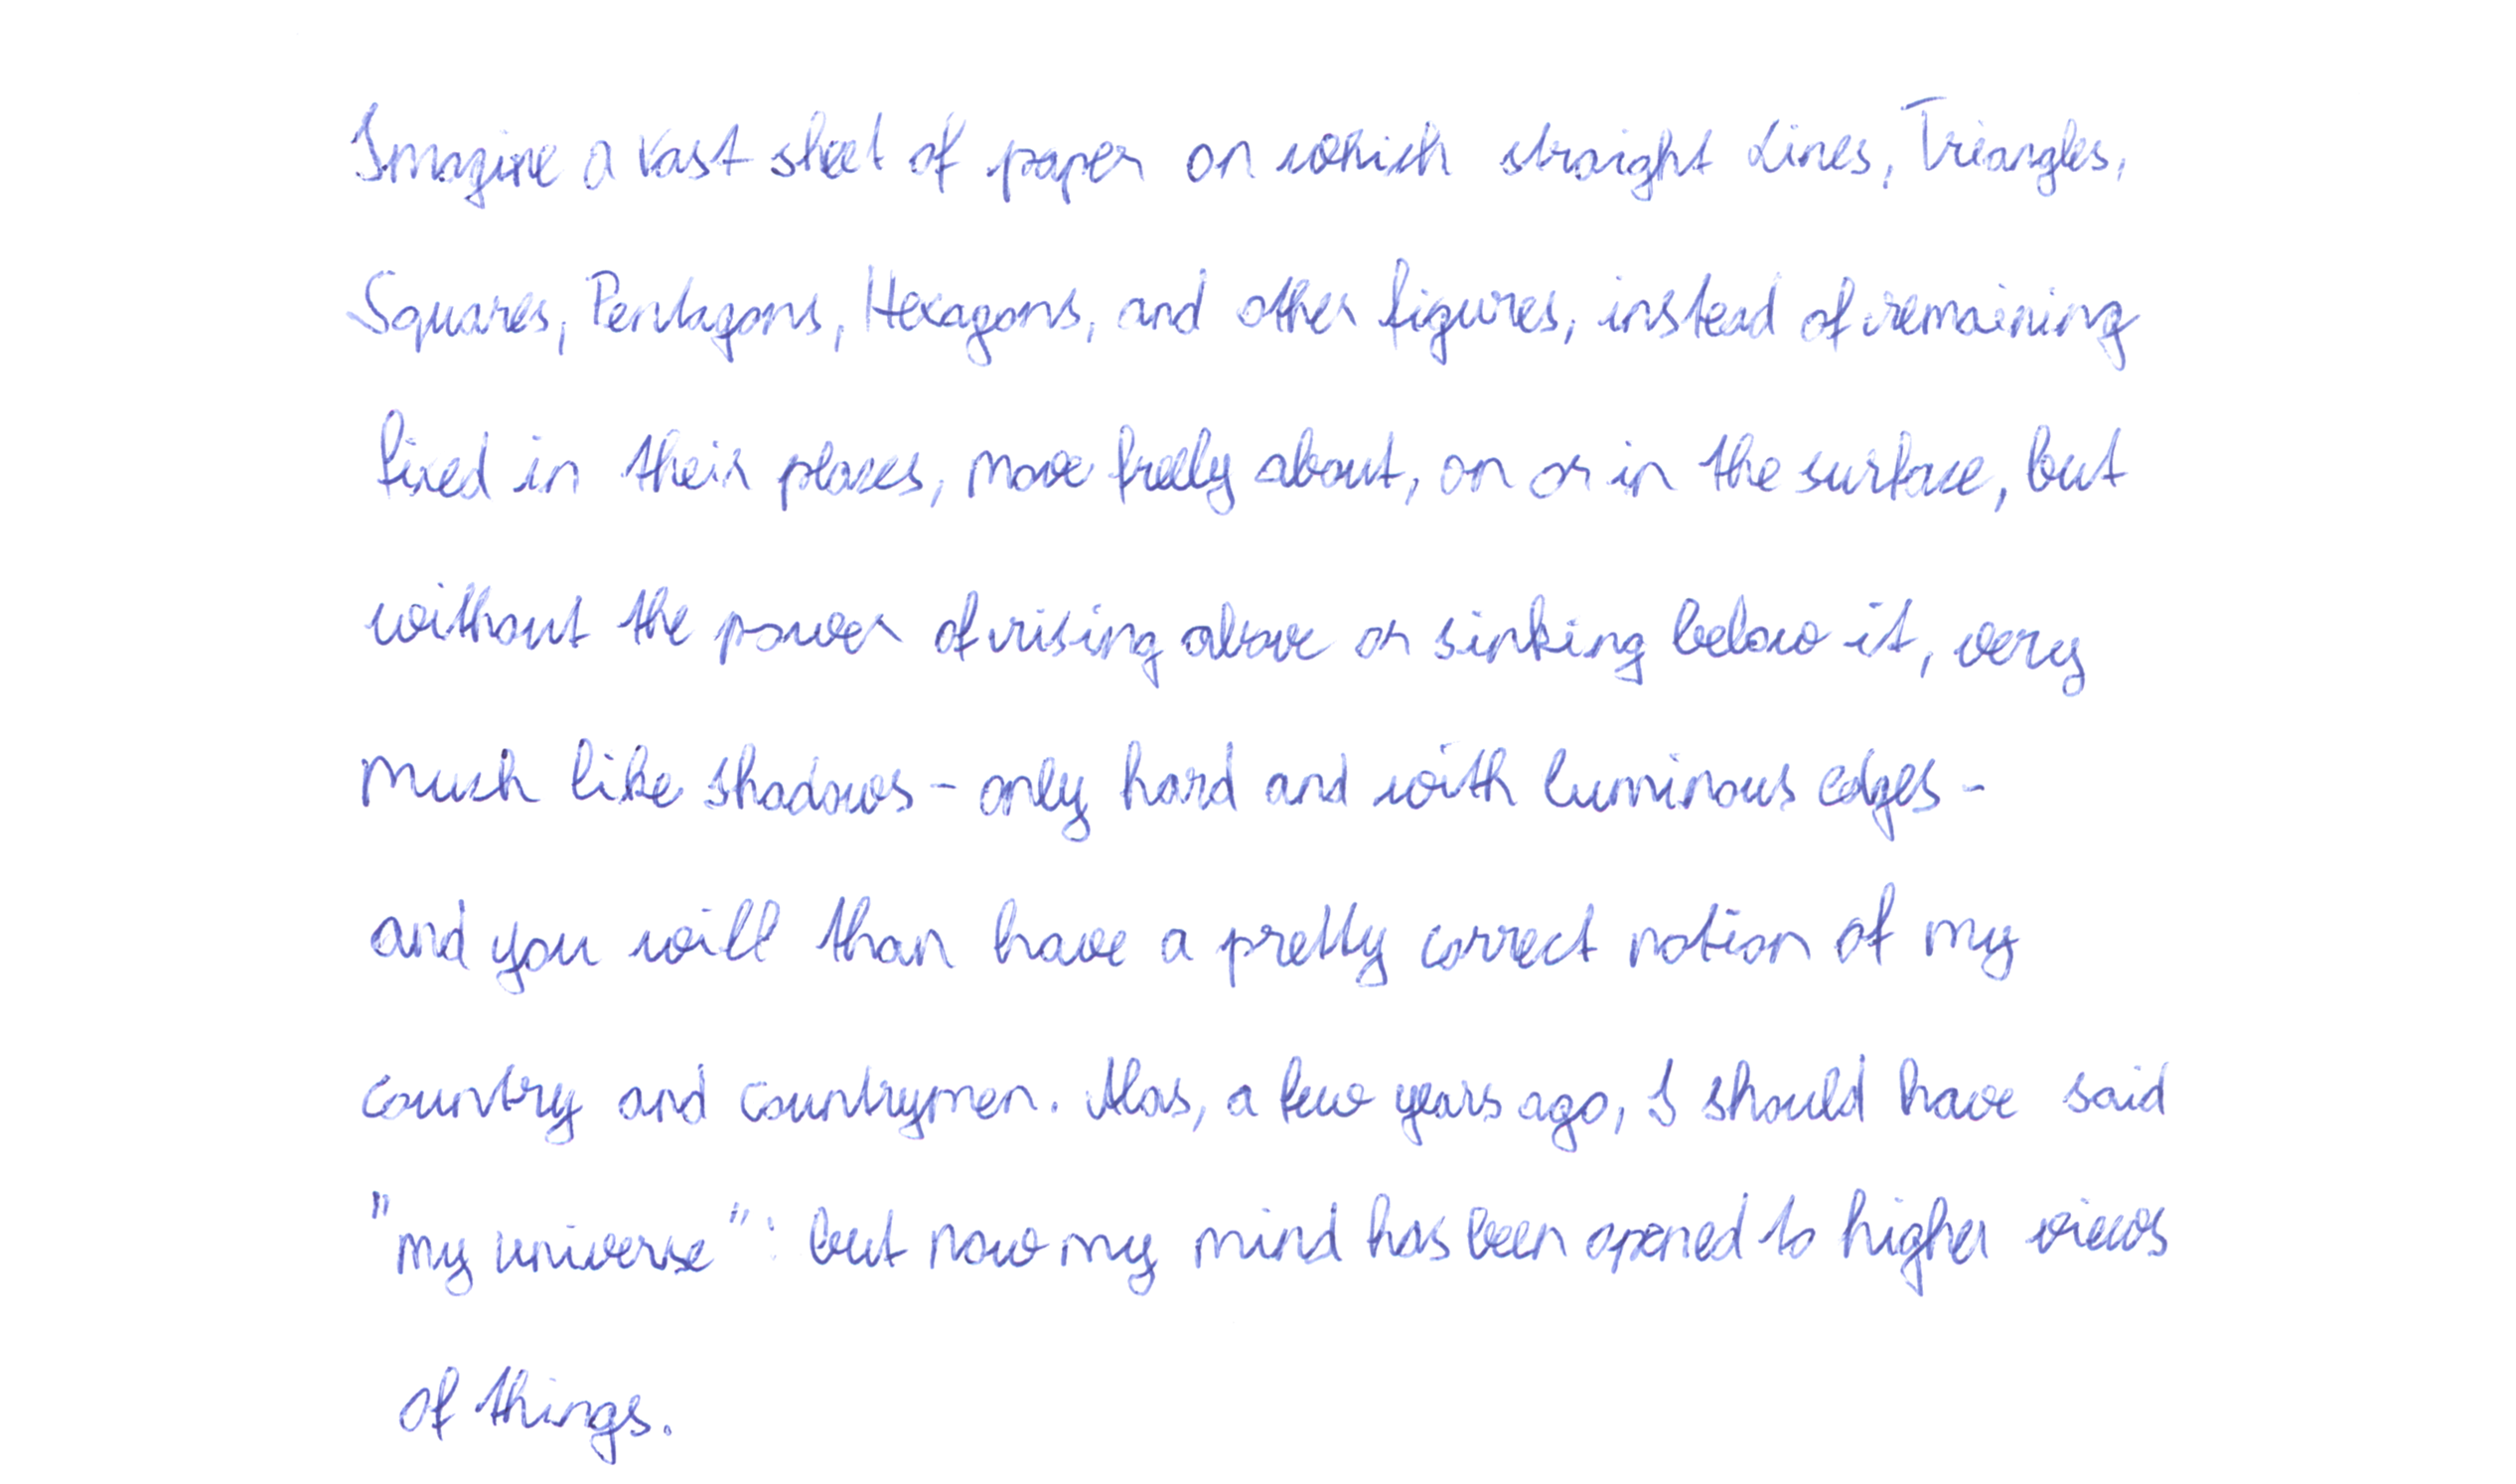 Imagine a vast sheet of paper on which straight Lines, Triangles,
Squares, Pentagons, Hexagons, and other figures, instead of remaining
fixed in their places, move freely about, on or in the surface, but
without the power of rising above or sinking below it, very
much like shadows - only hard and with luminous edges -
and you will than have a pretty correct notion of my
country and countrymen. Alas, a few years ago, I should have said
"my universe": but now my mind has been opened to higher views
of things.